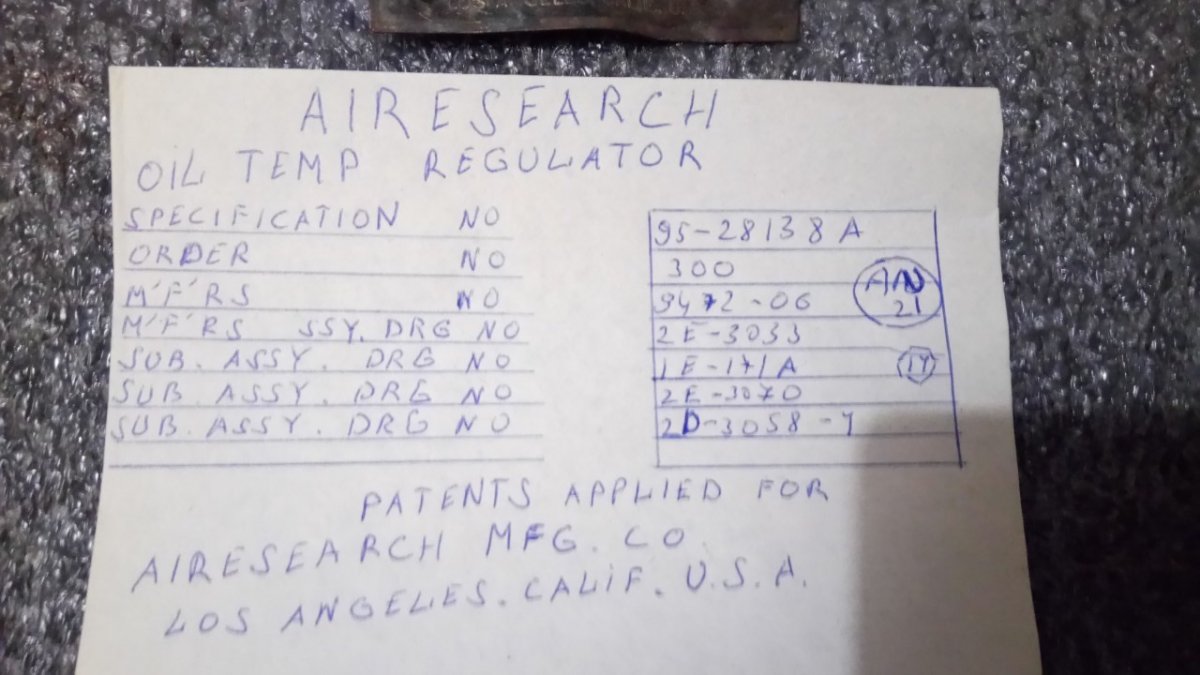 AIRESEARCH
OIL TEMP REGULATOR
SPECIFICATION NO 95-28138 A
ORDER NO 300
M'F'RS NO 9472-06
AN 21
M'F'RS SSY. DRG NO 2E-3033
SUB. ASSY. DRG NO 1E-171A
SUB. ASSY. DRG NO 2E-3070
SUB. ASSY. DRG NO 2D-3058-1
PATENTS APPLIED FOR
AIRESEARCH MFG. CO.
LOS ANGELES. CALIF. U.S.A.